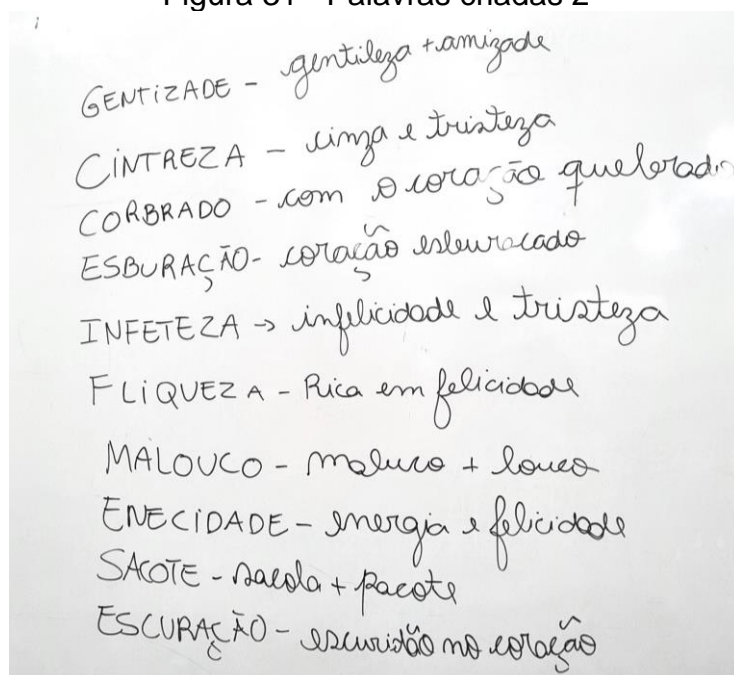 Figura 31 - Palavras criadas 2
GENTIZADE - gentileza + amizade
CINTREZA - cinza e tristeza
CORBRADO - com o coração quebrado
ESBURAÇÃO - coração esburacado
INFETEZA → infelicidade e tristeza
FLIQUEZA - Rica em felicidade
MALOUCO - maluco + louco
ENECIDADE - energia e felicidade
SACOTE - sacola + pacote
ESCURAÇÃO - escuridão no coração